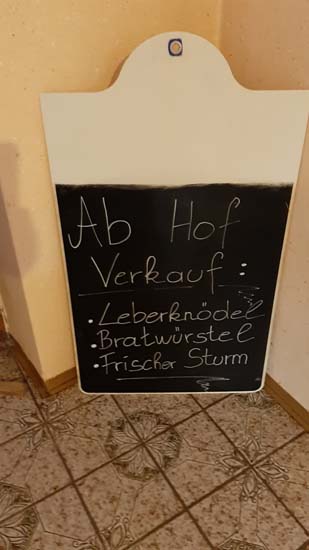 Ab Hof
Verkauf:
• Leberknödel
• Bratwürstel
• Frischer Sturm